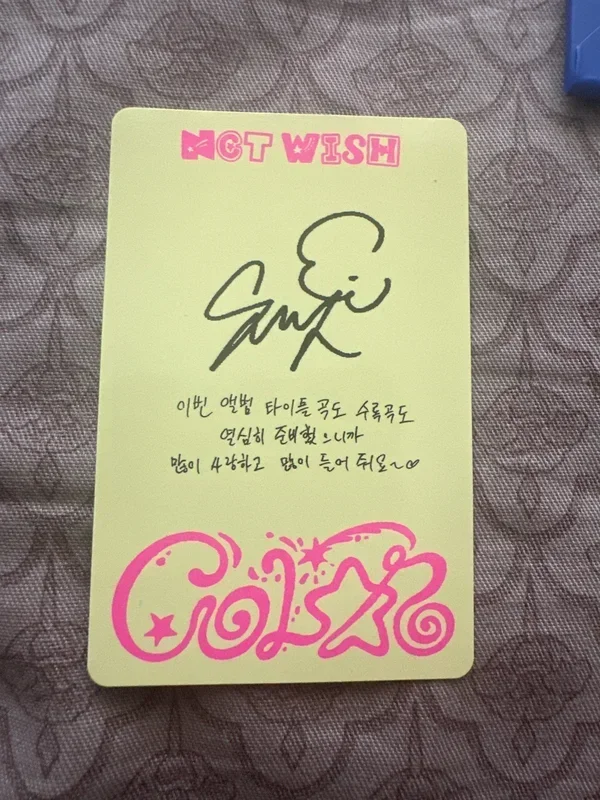 NCT WISH
이번 앨범 타이틀곡도 수록곡도
열심히 준비했으니까
많이 사랑하고 많이 들어 줘요~♡
COLOR